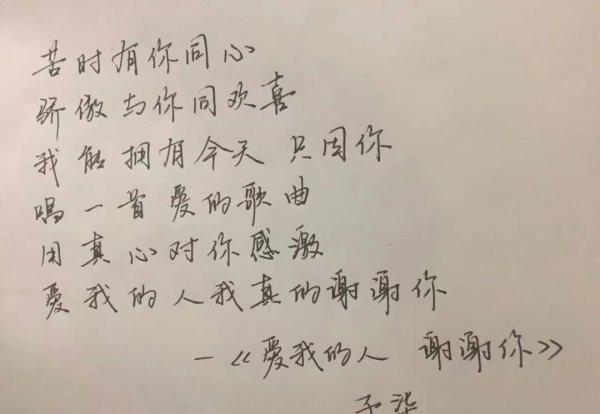 苦时有你同心
骄傲与你同欢喜
我能拥有今天 只因你
唱一首爱的歌曲
用真心对你感激
爱我的人我真的谢谢你
—《爱我的人 谢谢你》